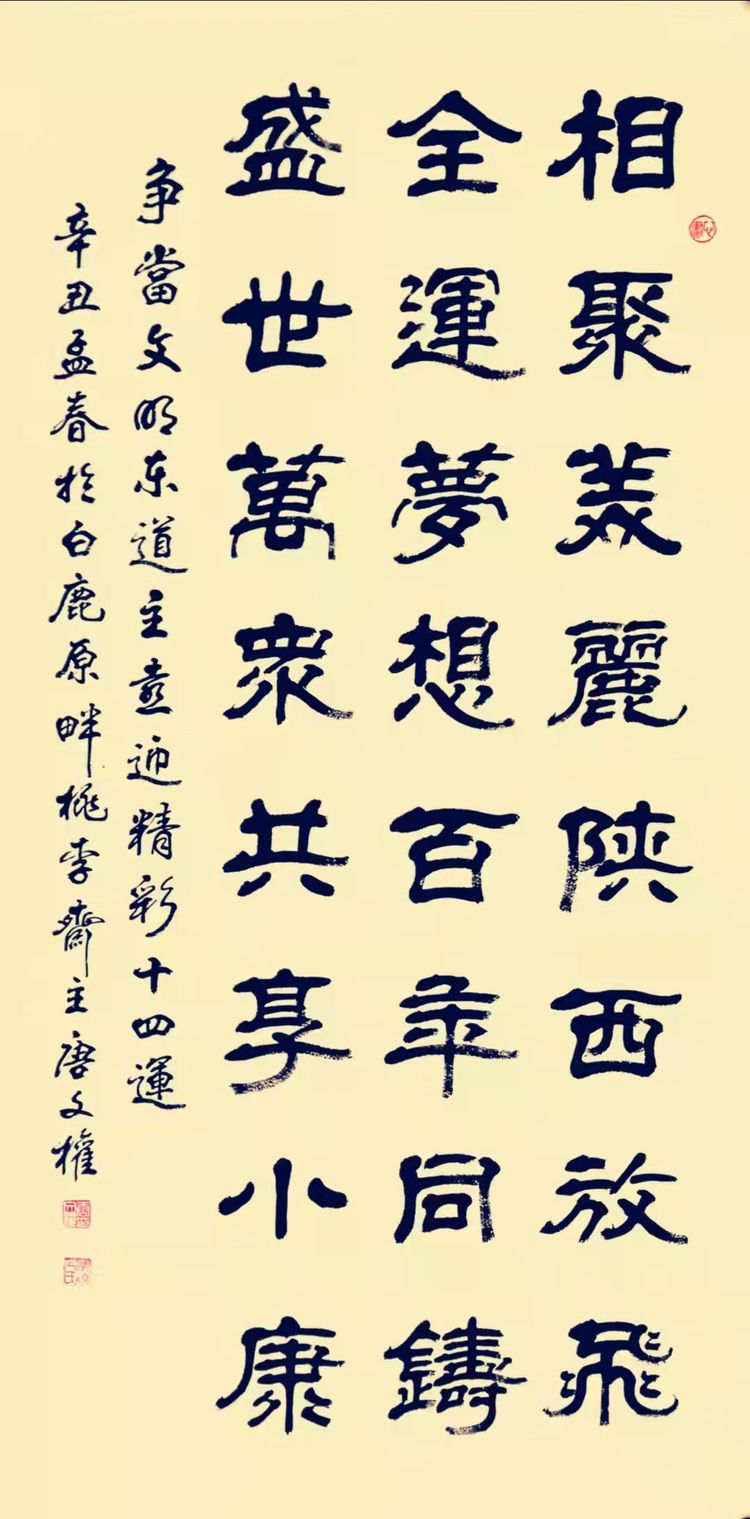 相聚美麗陕西放飛
全運夢想百年同鑄
盛世萬衆共享小康
争當文明东道主喜迎精彩十四運
辛丑孟春於白鹿原畔桃李齋主唐文權